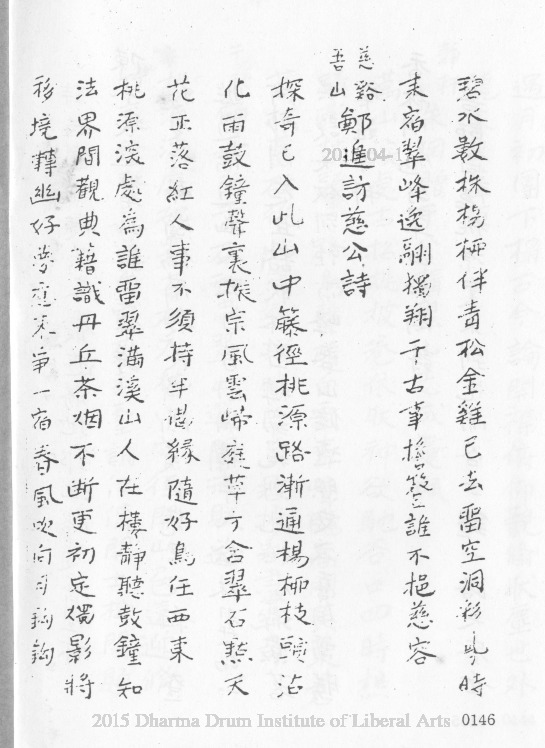 碧水數株楊柳伴青松金雞已去留空洞彩鳳時
來宿翠峰逸翮獨翔千古事擔簦誰不挹慈容
慈谿
吾山鄭進訪慈公詩
探奇已入此山中藤徑桃源路漸通楊柳枝頭沾
化雨鼓鐘聲裏振宗風雲歸庭草方含翠石點天
花正落紅人事不須持半偈緣隨好鳥任西東
桃源深處為誰留翠滿溪山人在樓靜聽鼓鐘知
法界間觀典籍識丹丘茶烟不斷更初定燭影將
移境轉幽好夢爭一宿春風吹向月鉤鉤
2015 Dharma Drum Institute of Liberal Arts 0146